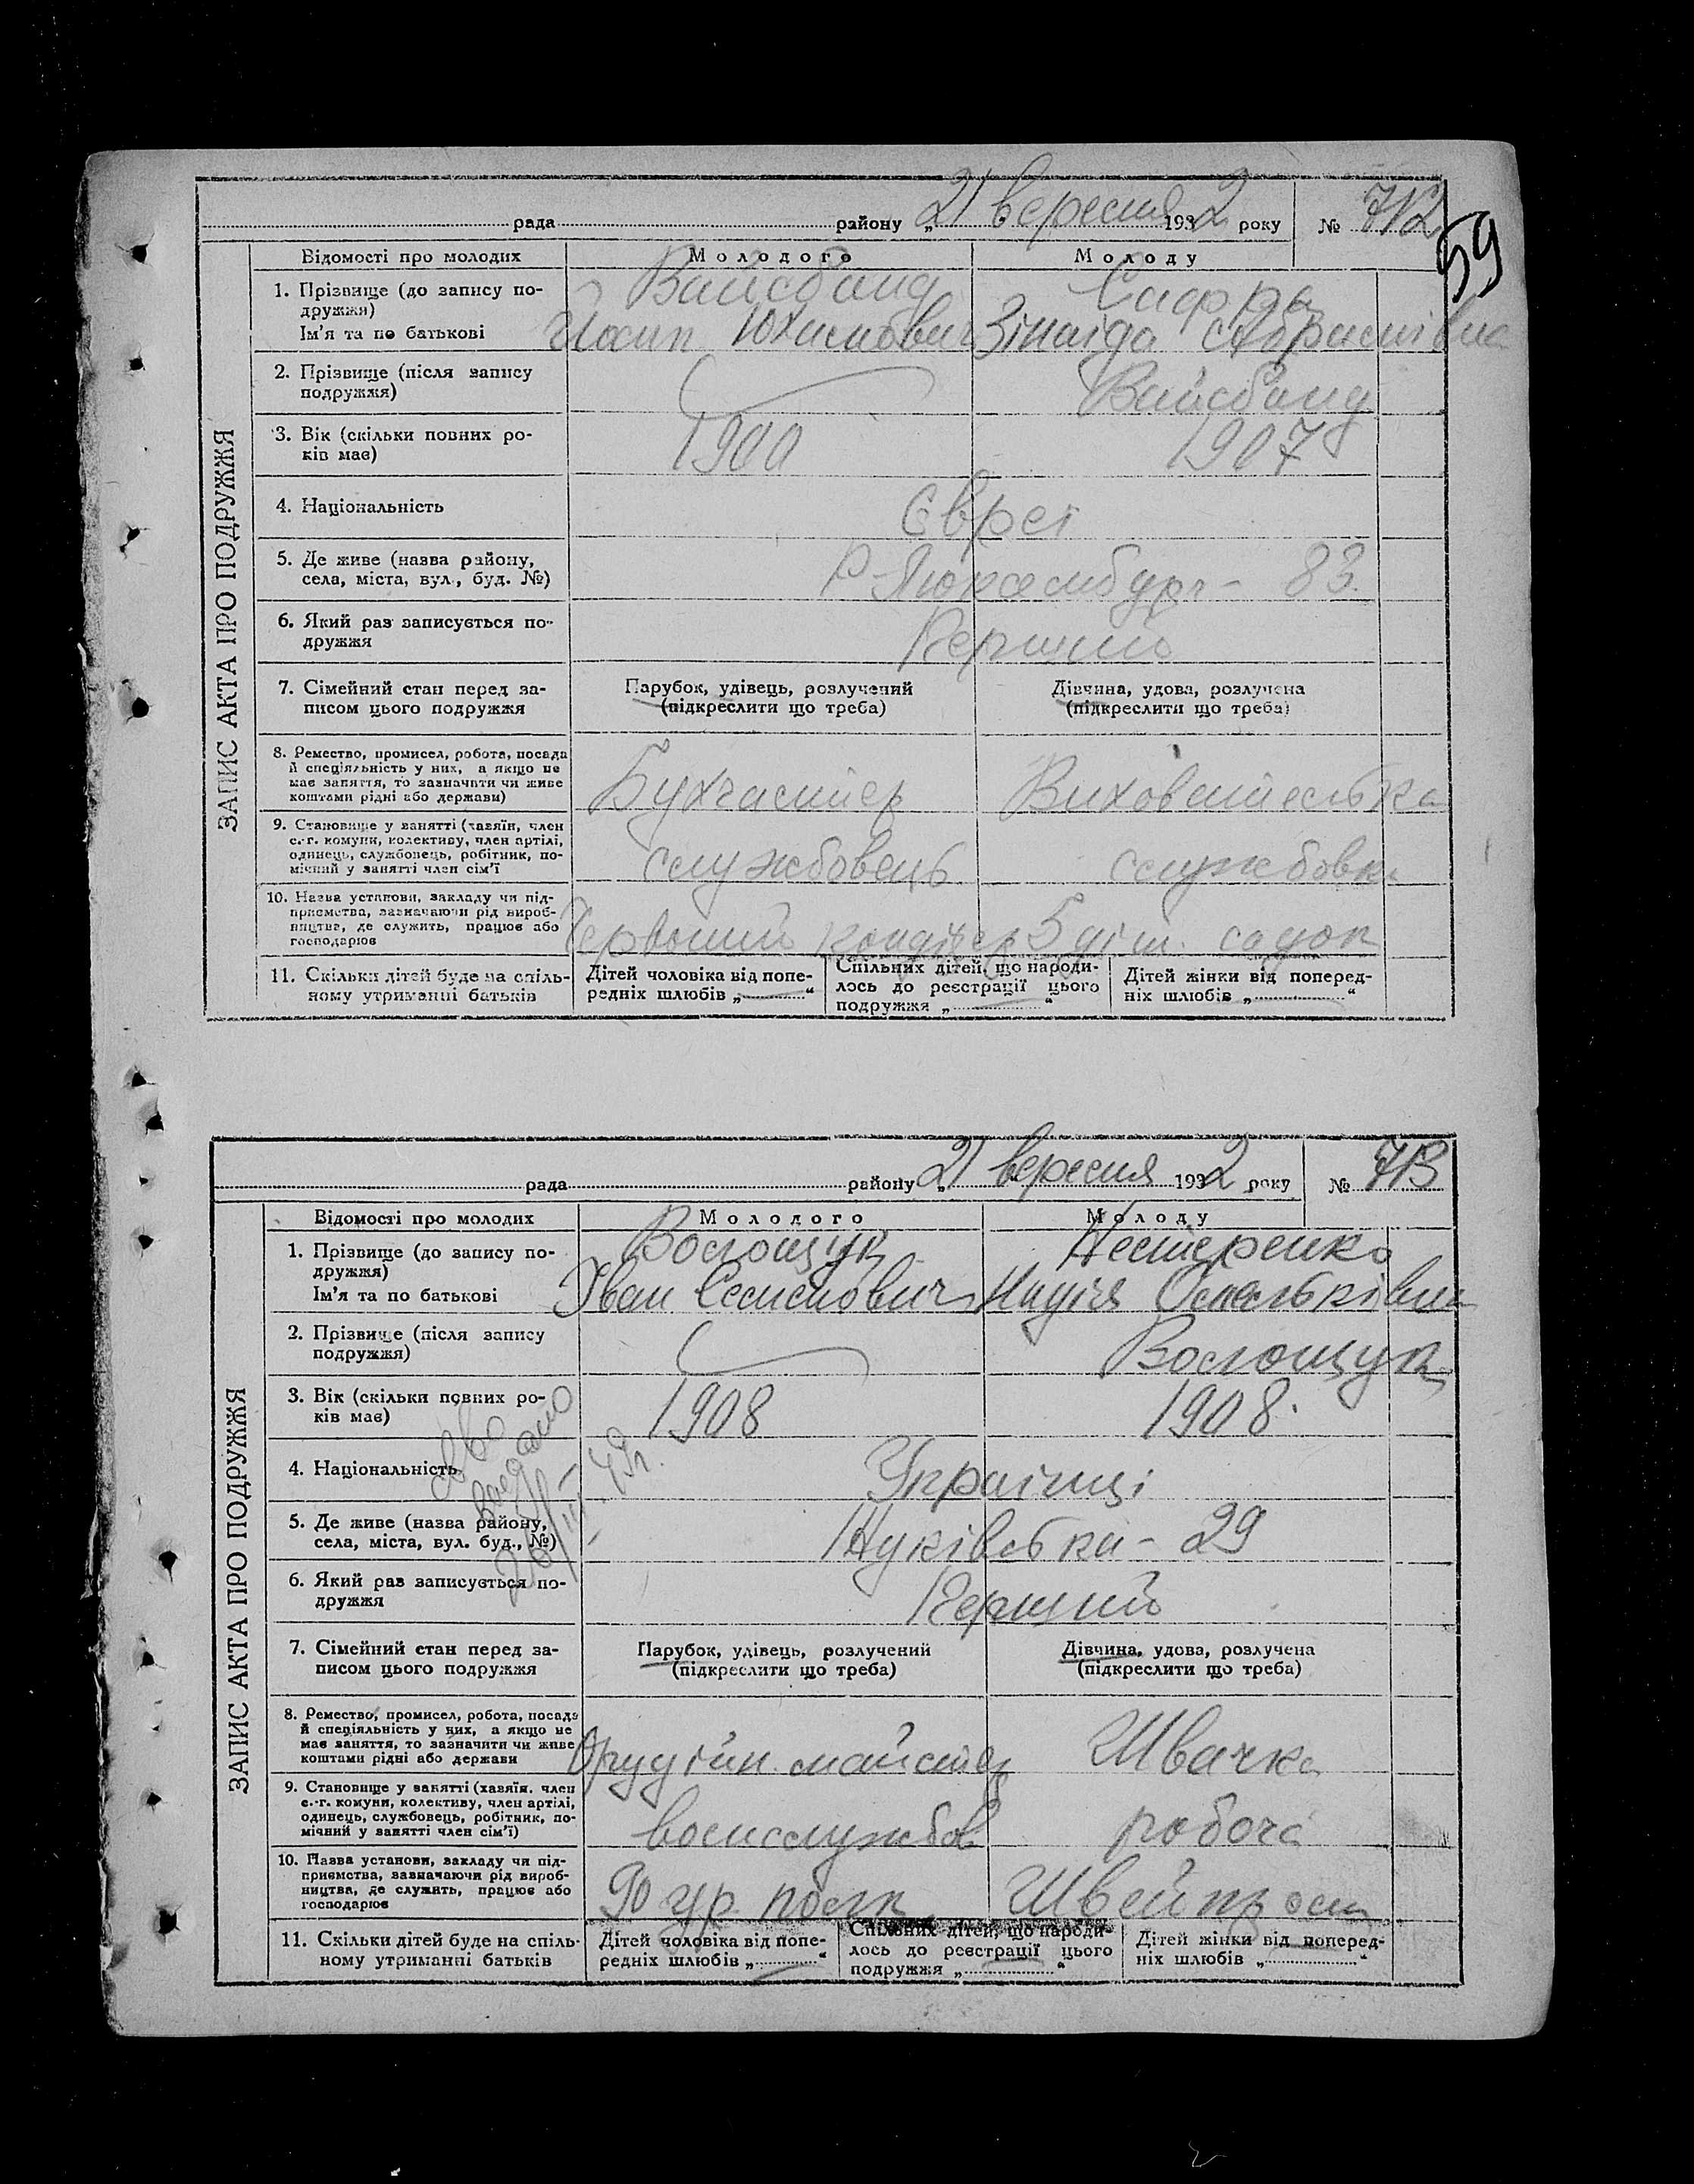 рада району „21 вересня 1932 року № 712
59
ЗАПИС АКТА ПРО ПОДРУЖЖЯ
Відомості про молодих Молодого Молоду
1. Прізвище (до запису по-
дружжя)
Ім'я та по батькові
Вайсбанд
Йосип Юхимович
Сафра
Зінаїда Абрамівна
2. Прізвище (після запису
подружжя)
Вайсбанд
3. Вік (скільки повних ро-
ків має)
1900 1907
4. Національність
Євреї
5. Де живе (назва району,
села, міста, вул., буд. №)
Р-Люксембург- 83.
6. Який раз записується по-
дружжя
Перший
7. Сімейний стан перед за-
писом цього подружжя
Парубок, удівець, розлучений
(підкреслити що треба)
Дівчина, удова, розлучена
(підкреслити що треба)
8. Ремество, промисел, робота, посада
й спеціяльність у них, а якщо не
має заняття, то зазначити чи живе
коштами рідні або держави)
Бухгалтер Вихователька
9. Становище у занятті (хазяїн, член
с.-г. комуни, колективу, член артілі,
одинець, службовець, робітник, по-
мічний у занятті член сім'ї
службовець службовка
10. Назва установи, закладу чи під-
приємства, зазначаючи рід вироб-
ництва, де служить, працює або
господарює
Червоний кондітер 5 діт. садок
11. Скільки дітей буде на спіль-
ному утриманні батьків
Дітей чоловіка від попе-
редніх шлюбів „ “
Спільних дітей, що народи-
лось до реєстрації цього
подружжя „ “
Дітей жінки від поперед-
ніх шлюбів „ “
рада району „21 вересня 1932 року № 713
ЗАПИС АКТА ПРО ПОДРУЖЖЯ
Відомості про молодих Молодого Молоду
1. Прізвище (до запису по-
дружжя)
Ім'я та по батькові
Волощук
Іван Семенович
Нестеренко
Надія Омельківна
2. Прізвище (після запису
подружжя)
Волощук
3. Вік (скільки повних ро-
ків має)
1908 1908.
4. Національність
Українці
5. Де живе (назва району,
села, міста, вул. буд., №)
29
6. Який раз записується по-
дружжя
Перший
7. Сімейний стан перед за-
писом цього подружжя
Парубок, удівець, розлучений
(підкреслити що треба)
Дівчина, удова, розлучена
(підкреслити що треба)
8. Ремество, промисел, робота, посада
й спеціяльність у них, а якщо не
має заняття, то зазначити чи живе
коштами рідні або держави
Орудійн. майстер Швачка
9. Становище у занятті (хазяїн, член
с.-г. комуни, колективу, член артілі,
одинець, службовець, робітник, по-
мічний у занятті член сім'ї)
воєнслужбов робоча
10. Назва установи, закладу чи під-
приємства, зазначаючи рід вироб-
ництва, де служить, працює або
господарює
90 полк
11. Скільки дітей буде на спіль-
ному утриманні батьків
Дітей чоловіка від попе-
редніх шлюбів „ “
Спільних дітей, що народи-
лось до реєстрації цього
подружжя „ “
Дітей жінки від поперед-
ніх шлюбів „ “